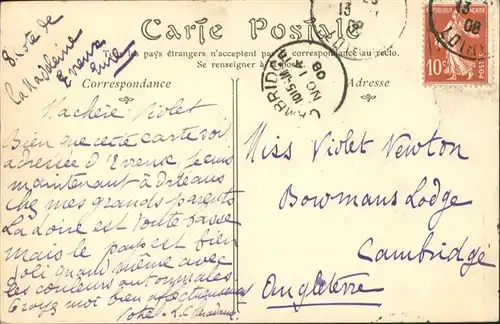 8 route de
La Madeleine
Evreux
Eure
Carte Postale
Tous les pays étrangers n'acceptent pas la correspondance au recto.
Se renseigner à la poste
Correspondance
Adresse
CAMBRIDGE
1015 AM
NO 1
08
13
08
10c
Ma chère Violet
Bien que cette carte soit
adressée d'Evreux je suis
maintenant à Orléans
chez mes grands parents
La Loire est toute basse
mais le pays est bien
joli quand même avec
les couleurs automnales
Croyez moi bien affectueusement
Votre
Miss Violet Newton
Bowmans Lodge
Cambridge
Angleterre